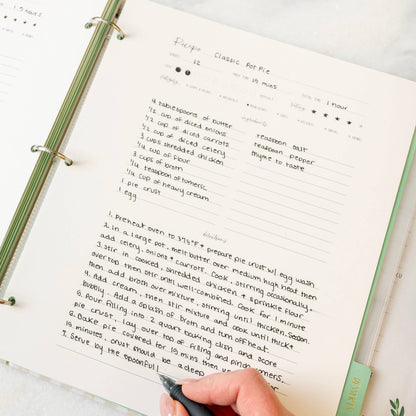 1.5 hours
Recipe Classic Pot Pie
12
15 mins
1 hour
ingredients
4 tablespoons of butter
1/2 cup of diced onions
1/2 cup of diced carrots
1/2 cup of diced celery
3 cups shredded chicken
1/4 cup of flour
3 cups of broth
1/4 teaspoon of tumeric
1/4 cup of heavy cream
1 pie crust
1 egg
teaspoon salt
teaspoon pepper
thyme to taste
directions
1. Preheat oven to 375°F + prepare pie crust w/ egg wash
2. In a large pot, melt butter over medium high heat then
add celery, onions + carrots. Cook, stirring occasionally.
3. Stir in cooked, shredded chicken + sprinkle flour
over top then stir until well-combined. Cook for 1 minute
then, add broth over mixture, stirring until thicken. Season
4. Add cream, then stir mixture and cook until thick +
bubbly. Add a splash of broth and turn off heat
5. Pour filling into 2 quart baking dish and score
pie crust, lay over top of filling and pinch corners.
6. Bake pie covered for 15 mins then
minutes, crust should be a deep
7. Serve by the spoonful!